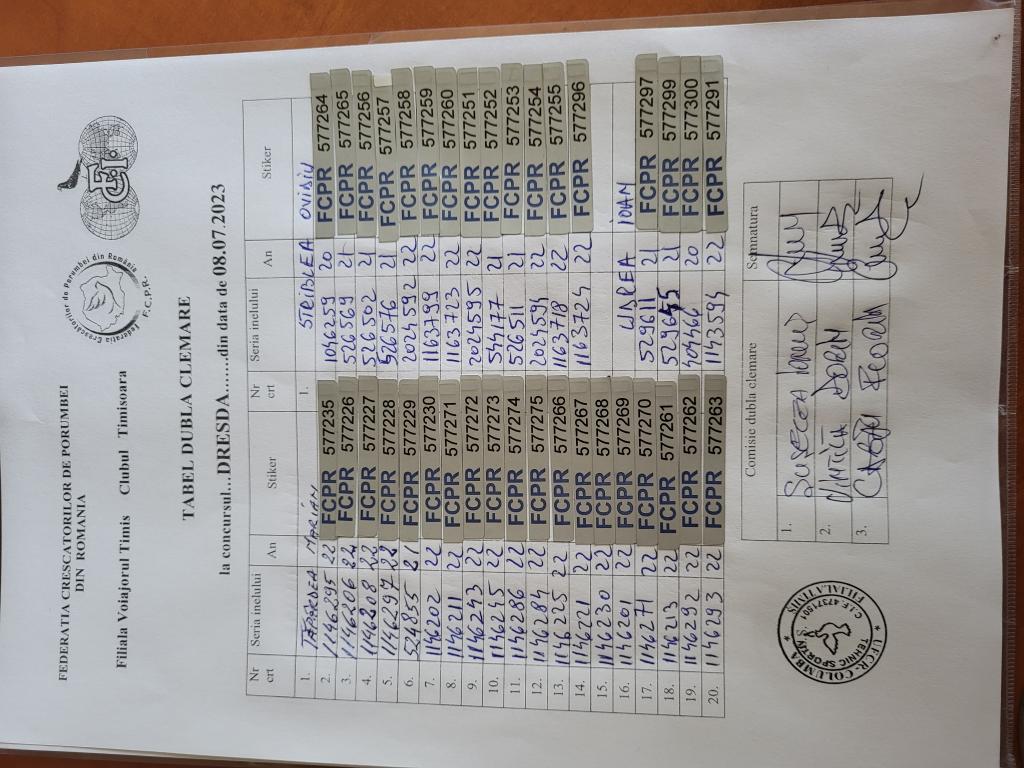 FEDERATIA CRESCATORILOR DE PORUMBEI
DIN ROMANIA
Federatia Crescatorilor de Porumbei din România
F.C.P.R.
FCI
Filiala Voiajorul Timis Clubul Timisoara
TABEL DUBLA CLEMARE
la concursul...DRESDA.......din data de 08.07.2023
Nr crt Seria inelului An Stiker Nr crt Seria inelului An Stiker
1. MARIAN 1. STRIBLEA OVIDIU
2. 1146295 22 FCPR 577235 1046259 20 FCPR 577264
3. 1146206 22 FCPR 577226 526569 21 FCPR 577265
4. 1146208 22 FCPR 577227 526502 21 FCPR 577256
5. 1146297 22 FCPR 577228 526576 21 FCPR 577257
6. 524855 21 FCPR 577229 2024592 22 FCPR 577258
7. 1146202 22 FCPR 577230 1163799 22 FCPR 577259
8. 1146211 22 FCPR 577271 1163723 22 FCPR 577260
9. 1146243 22 FCPR 577272 2024595 22 FCPR 577251
10. 1146245 22 FCPR 577273 544177 21 FCPR 577252
11. 1146286 22 FCPR 577274 526511 21 FCPR 577253
12. 1146284 22 FCPR 577275 2024594 22 FCPR 577254
13. 1146225 22 FCPR 577266 1163718 22 FCPR 577255
14. 1146221 22 FCPR 577267 1163724 22 FCPR 577296
15. 1146230 22 FCPR 577268
16. 1146201 22 FCPR 577269 IOAN
17. 1146271 22 FCPR 577270 529611 21 FCPR 577297
18. 1146213 22 FCPR 577261 21 FCPR 577299
19. 1146292 22 FCPR 577262 20 FCPR 577300
20. 1146293 22 FCPR 577263 1143594 22 FCPR 577291
Comisie dubla clemare Semnatura
1.
2. DORIN
3.
U.F.C.P.R. COLUMBA
FILIALA TIMIS
C.I.F. 47371501
TEHNIC SPORTIV